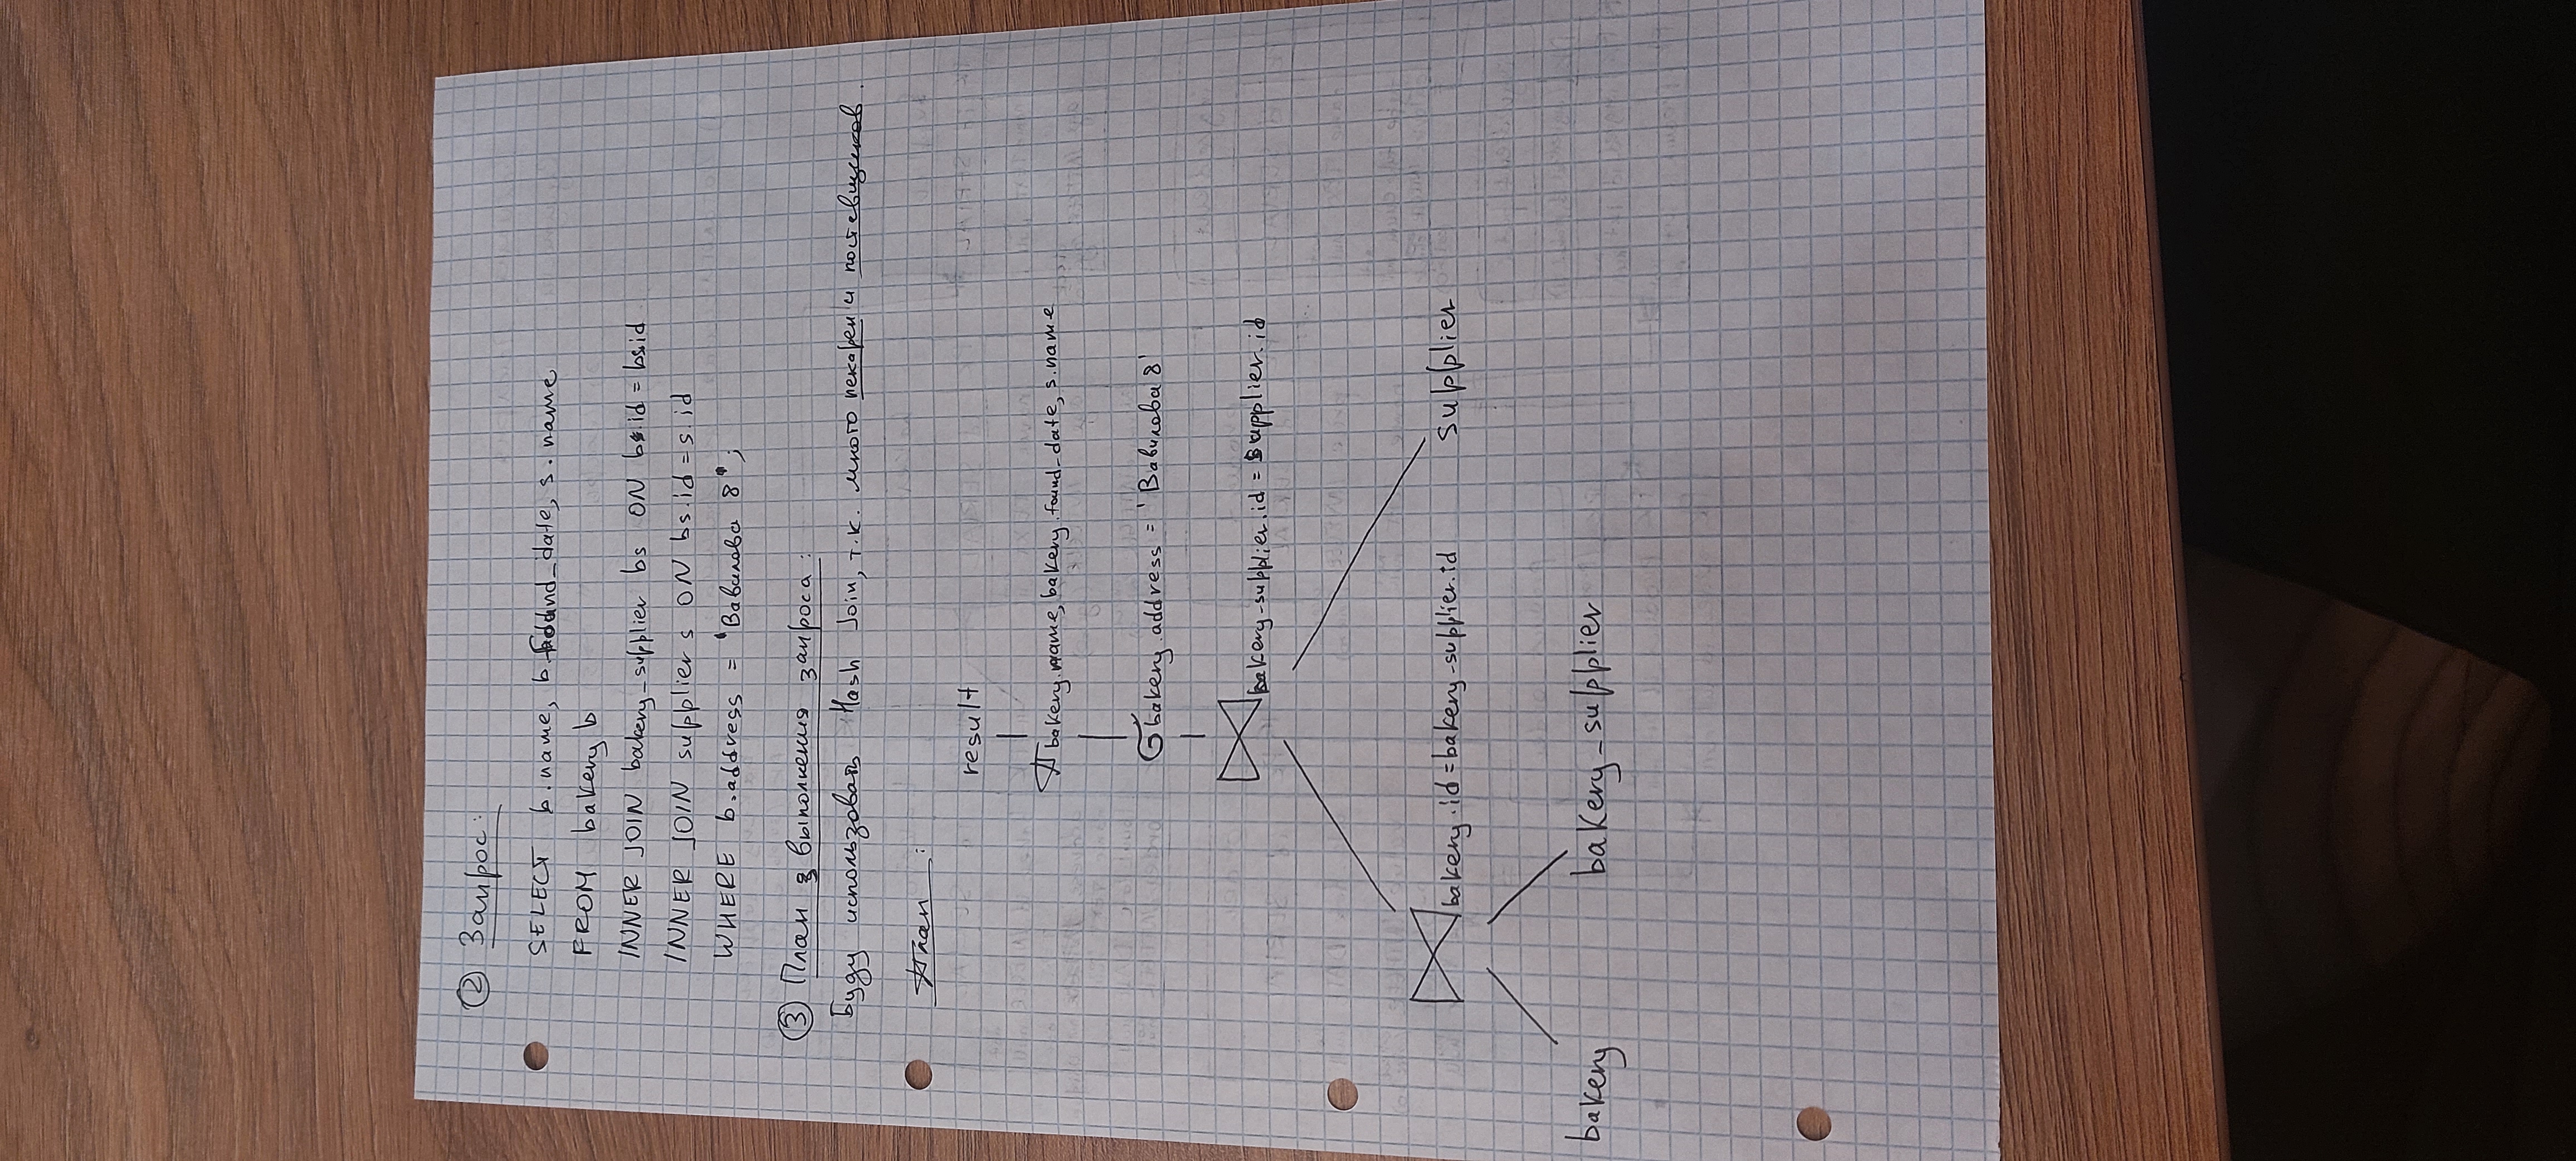 ② Запрос:
SELECT b.name, b.found_date, s.name
FROM bakery b
INNER JOIN bakery_supplier bs ON b.id = bs.id
INNER JOIN supplier s ON bs.id = s.id
WHERE b.address = 'Вавилова 8';
③ План выполнения запроса:
Буду использовать Hash Join, т.к. много пекарен и поставщиков.
План:
result
π bakery.name, bakery.found_date, s.name
σ bakery.address = 'Вавилова 8'
⋈ bakery_supplier.id = supplier.id
⋈ bakery.id = bakery_supplier.id supplier
bakery bakery_supplier